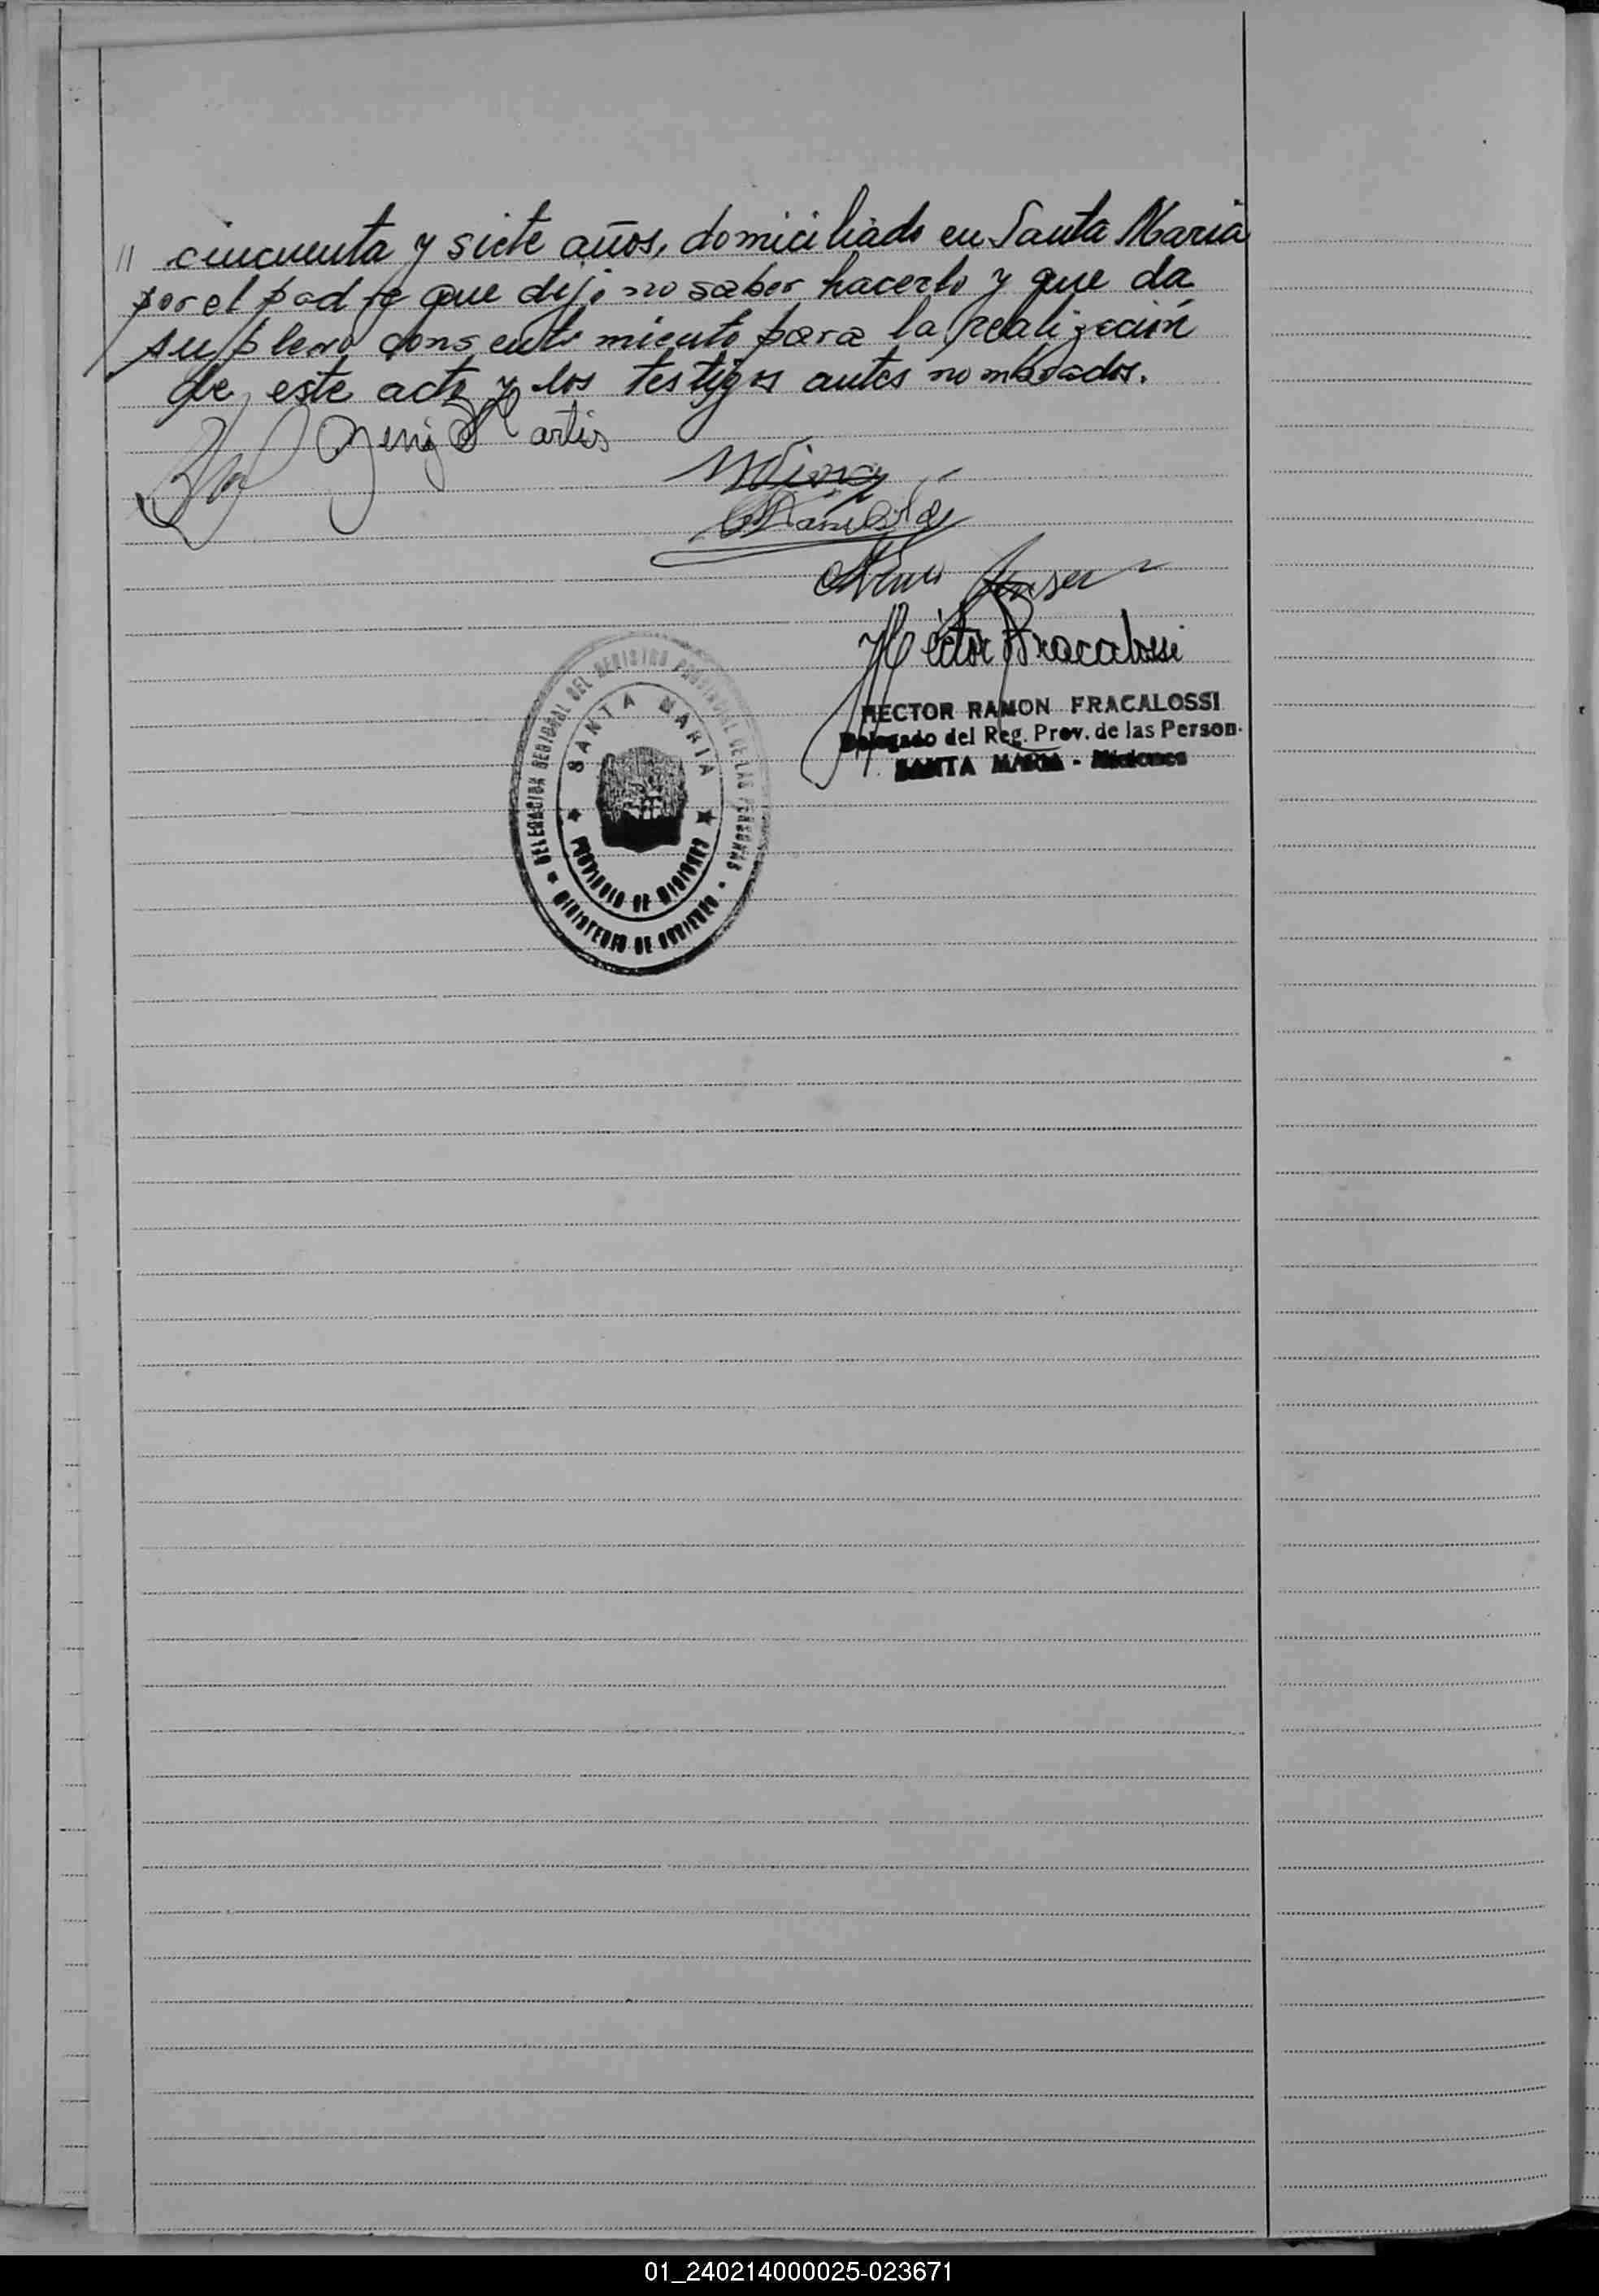 // cincuenta y siete años, domiciliado en Santa Maria
por el padre que dijo no saber hacerlo y que da
su pleno consentimiento para la realización
de este acto y los testigos antes nombrados.
Héctor Fracalossi
HECTOR RAMON FRACALOSSI
Delegado del Reg. Prov. de las Person.
SANTA MARIA - Misiones
DELEGACION REGIONAL DEL REGISTRO PROVINCIAL DE LAS PERSONAS
SANTA MARIA
PROVINCIA DE MISIONES
MINISTERIO DE GOBIERNO
01_240214000025-023671